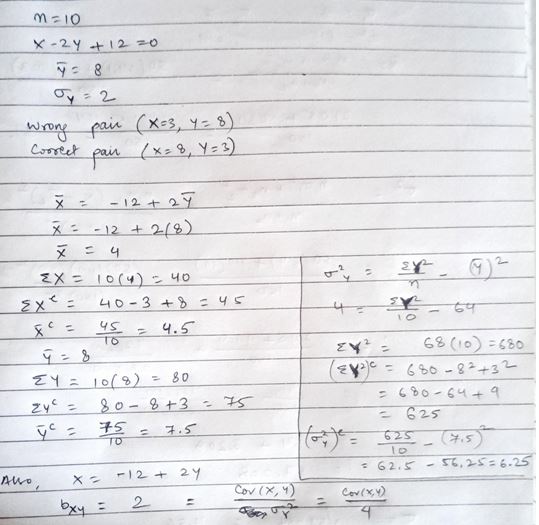 n=10
x-2y+12=0
ȳ = 8
σy = 2
wrong pair (x=3, y=8)
Correct pair (x=8, y=3)
x̄ = -12 + 2ȳ
x̄ = -12 + 2(8)
x̄ = 4
ΣX = 10(4) = 40
ΣXᶜ = 40-3+8 = 45
x̄ᶜ = 45/10 = 4.5
ȳ = 8
ΣY = 10(8) = 80
ΣYᶜ = 80-8+3 = 75
ȳᶜ = 75/10 = 7.5
σ²y = ΣY²/n - (ȳ)²
4 = ΣY²/10 - 64
ΣY² = 68(10) = 680
(ΣY²)ᶜ = 680 - 8² + 3²
= 680 - 64 + 9
= 625
(σ²y)ᶜ = 625/10 - (7.5)²
= 62.5 - 56.25 = 6.25
Also, x = -12 + 2y
bxy = 2 = Cov(x,y)/σx² = Cov(x,y)/4